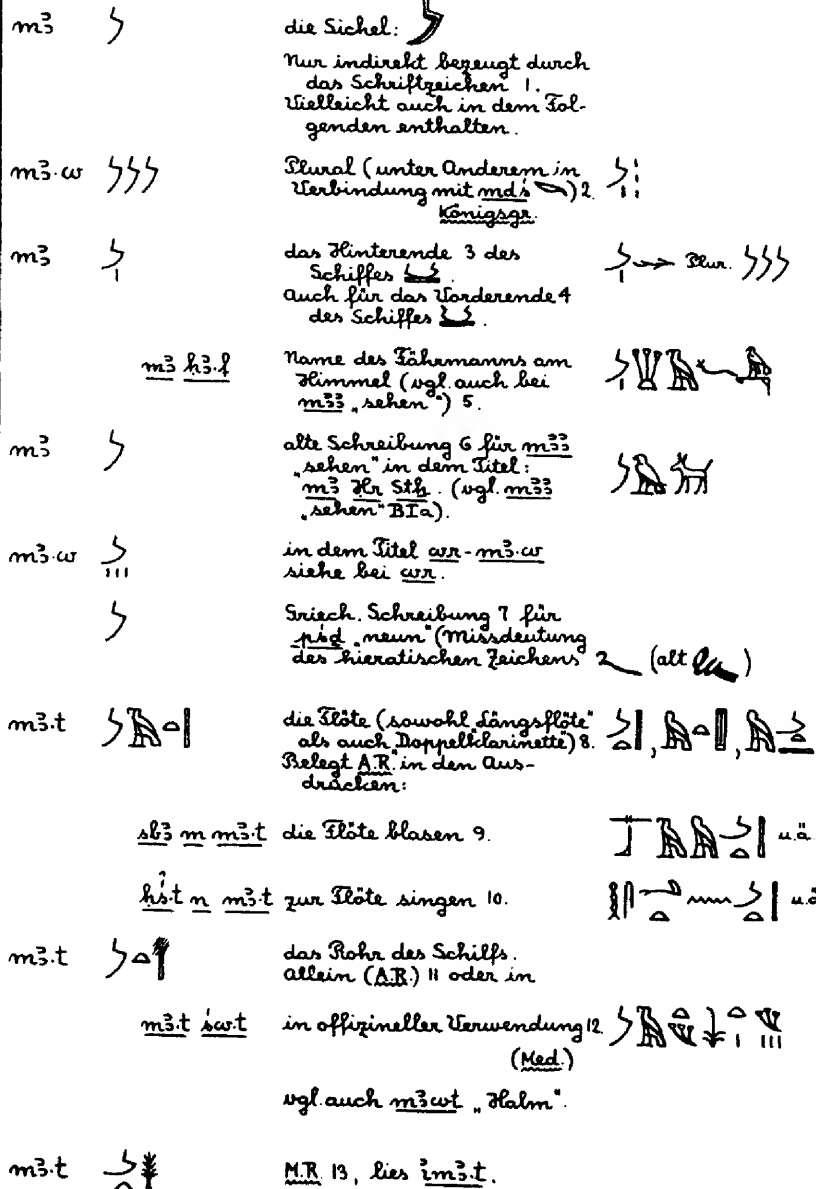 mꜣ 𓌳 die Sichel:
Nur indirekt bezeugt durch
das Schriftzeichen 1.
Vielleicht auch in dem Fol-
genden enthalten.
mꜣ.w 𓌳𓌳𓌳 Plural (unter Anderem in
Verbindung mit mdś) 2.
Königsgr.
mꜣ 𓌳𓏤 das Hinterende 3 des
Schiffes.
Auch für das Vorderende 4
des Schiffes. Plur. 𓌳𓌳𓌳
mꜣ ḥꜣ.f Name des Fährmanns am
Himmel (vgl. auch bei
mꜣꜣ „sehen“) 5.
mꜣ 𓌳 alte Schreibung 6 für mꜣꜣ
„sehen“ in dem Titel:
mꜣ Ḥr Stẖ. (vgl. mꜣꜣ
„sehen“ BIa).
mꜣ.w 𓌳𓏥 in dem Titel wr-mꜣ.w
siehe bei wr.
𓌳 Griech. Schreibung 7 für
pśḏ „neun“ (Missdeutung
des hieratischen Zeichens (alt )
mꜣ.t 𓌳𓄿𓏏 die Flöte (sowohl „Längsflöte“
als auch „Doppelklarinette“) 8.
Belegt A.R. in den Aus-
drücken:
sbꜣ m mꜣ.t die Flöte blasen 9. u.ä
ḥś.t n mꜣ.t zur Flöte singen 10. u.ä
mꜣ.t 𓌳𓏏 das Rohr des Schilfs.
allein (A.R.) 11 oder in
mꜣ.t św.t in offizineller Verwendung 12.
(Med.)
vgl. auch mꜣwt „Halm“.
mꜣ.t M.R. 13, lies imꜣ.t.